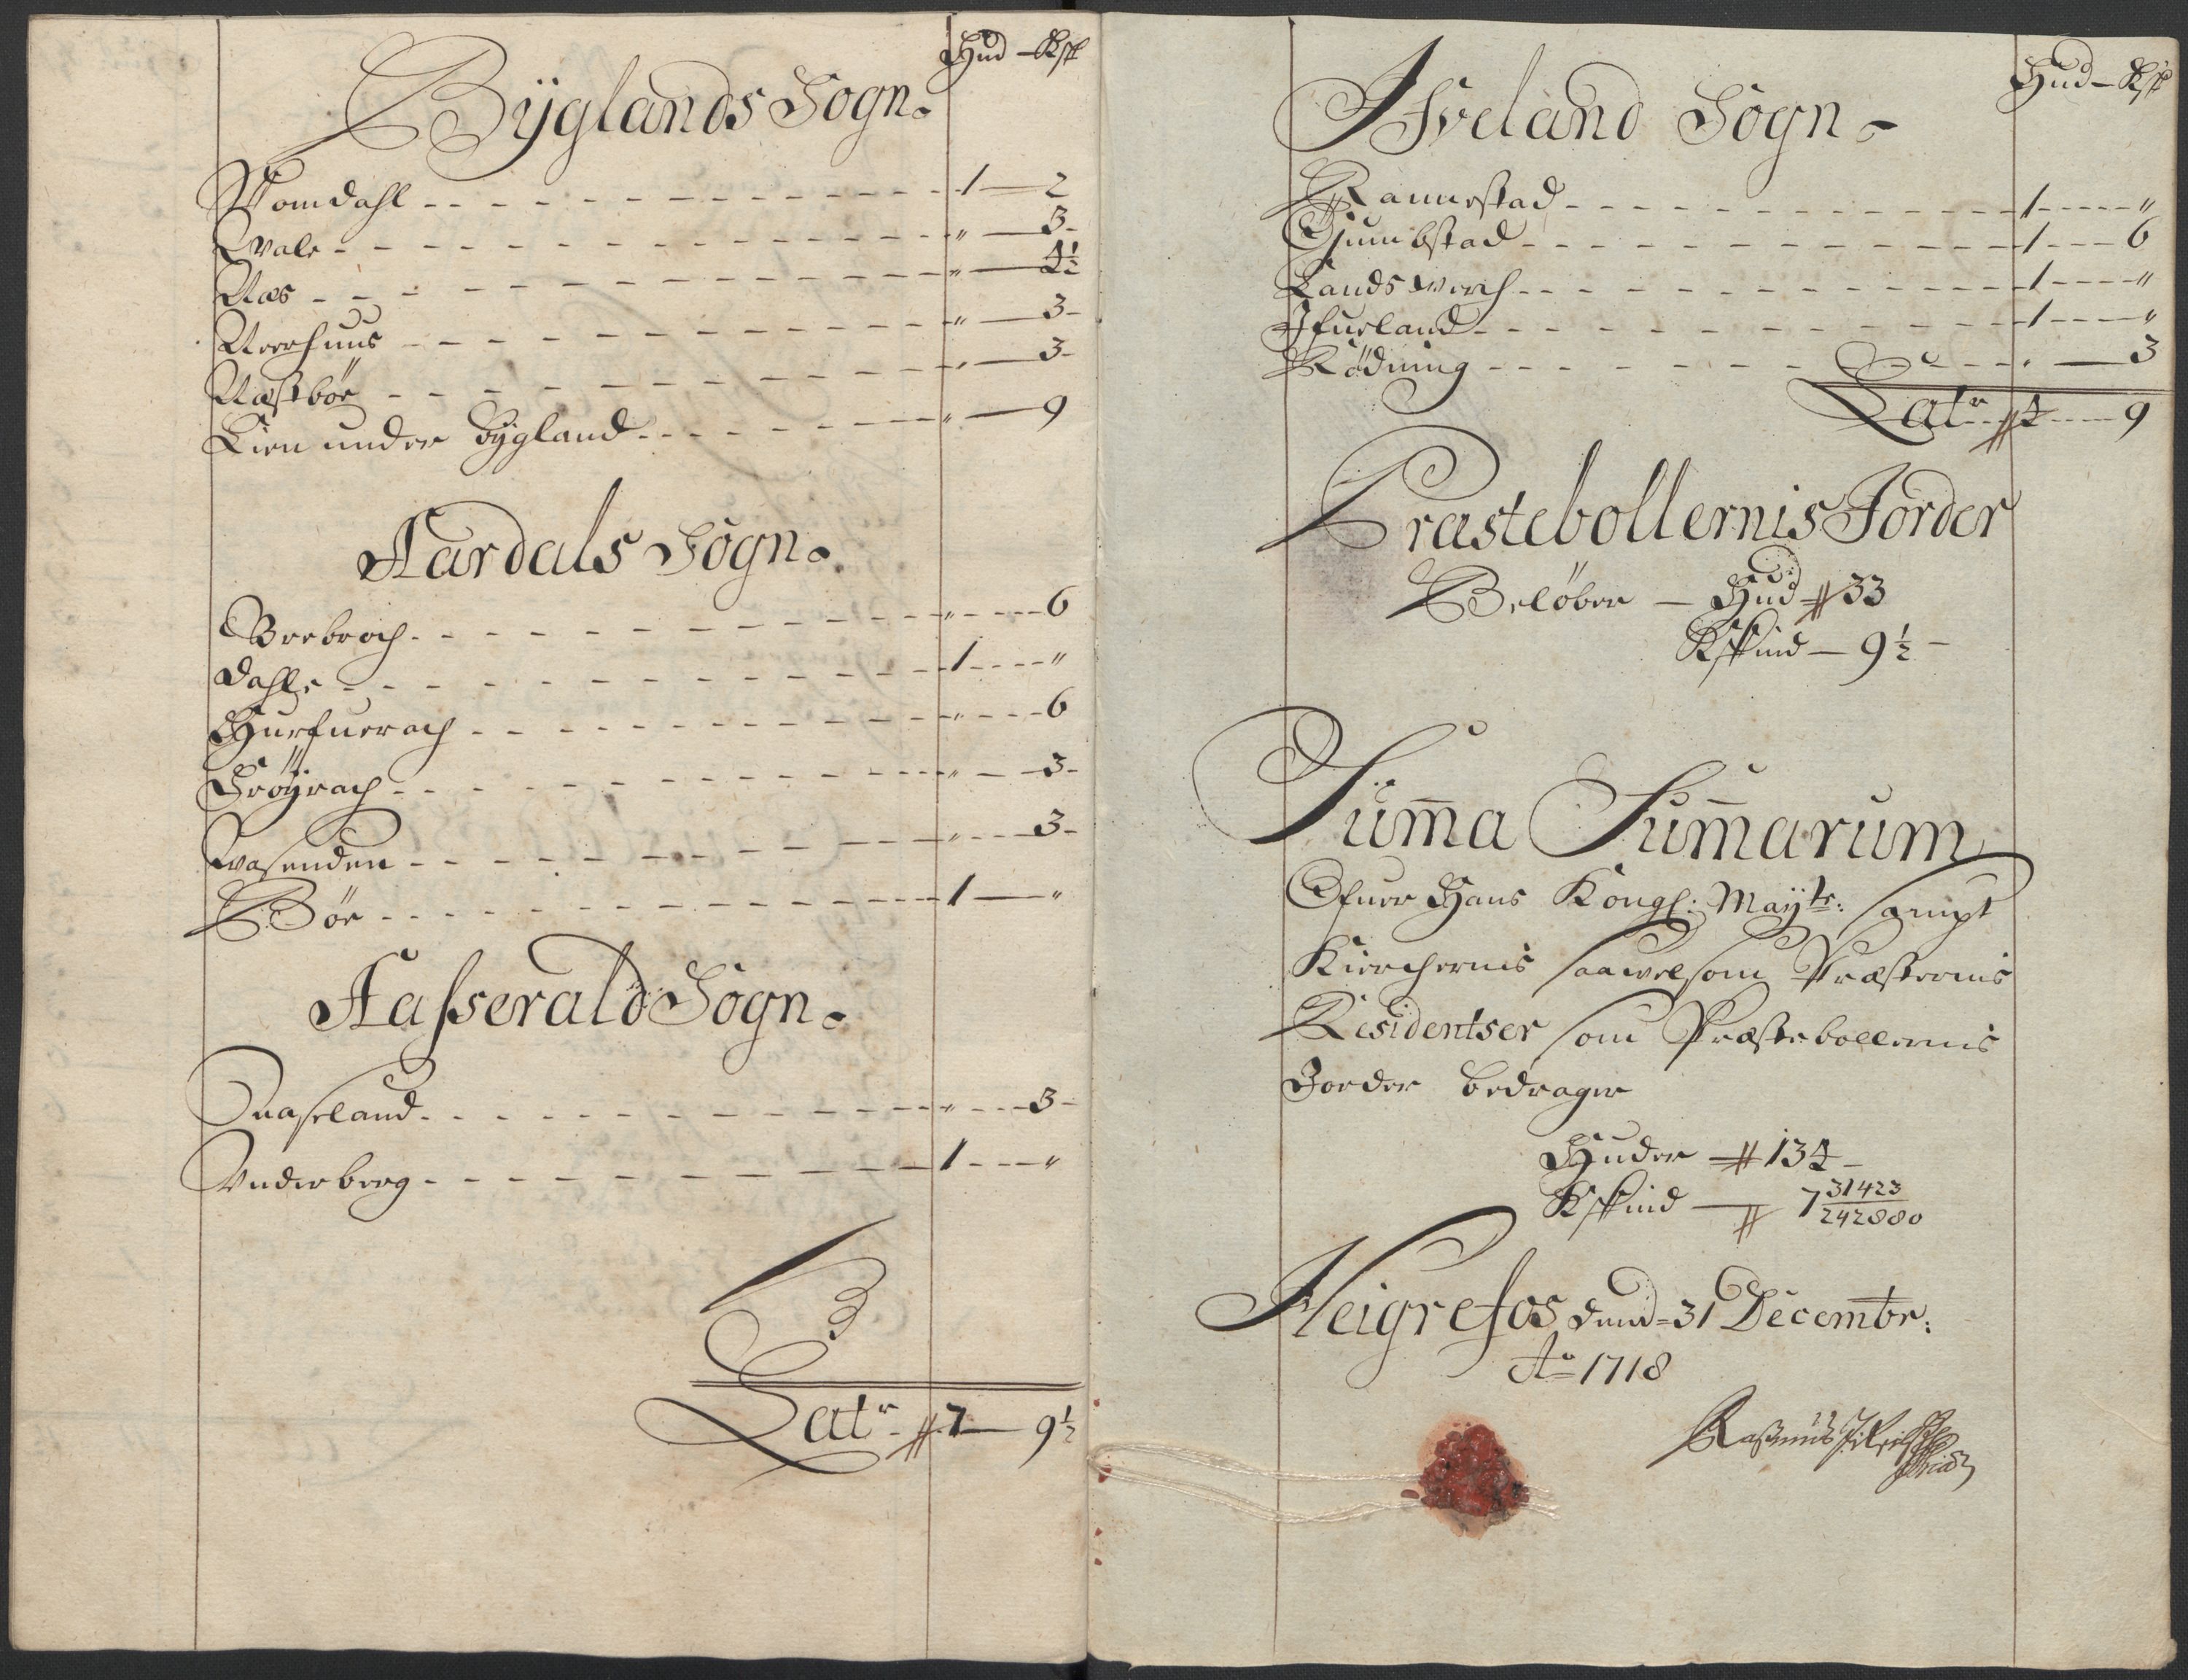 Hud — Ksk
Bÿglands Sogn.
Womdahl - - - 1 — 2
Qvale - - - " — 3 -
Næs - - - " — 4½
Neerhuus - - - " — 3 -
Næstböe - - - " — 3 -
Lien under Bÿgland - - - " — 9
Aardals Sogn.
Brebroch - - - " - - - 6
Dahle - - - 1 - - - "
Hurfuerach - - - " - - - 6
Fröÿrach - - - " — 3 -
Wasenden - - - " - - - 3 -
Böe - - - 1 — "
Aasserald Sogn.
Quaaseland - - - " - - - 3 -
Underberg - - - 1 - - - "
Latr - 7 — 9½
Hud — Ksk
Ifveland Sogn.
Rannestad - - - 1 - - - "
Giumbstad - - - 1 - - - 6
Landswerch - - - 1 - - - "
Ifueland - - - 1 - - - "
Rödning - - - " — 3
Latr - 4 - - - 9
Præstebollernis Jorder
Belöber — Hud 33
Kskind — 9½ -
Sum̄a Sum̄arum
Ofuer Hans Kongl: Maÿts: sampt
Kierchernis saavelsom Præsternis
Residentser som Præstebollernis
Jorder bedrager
Huder — 134 -
Kskind — 7 31423/242880
Heigrefos dend = 31 Decembr:
Ao 1718
Rasmus